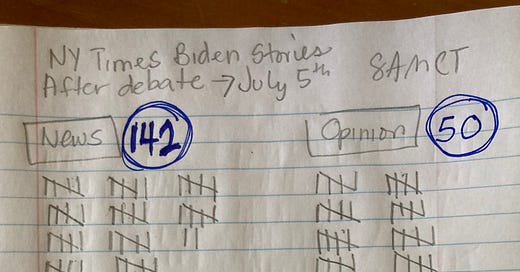 NY Times Biden Stories
After debate → July 5th 8AM CT
News 142 Opinion 50